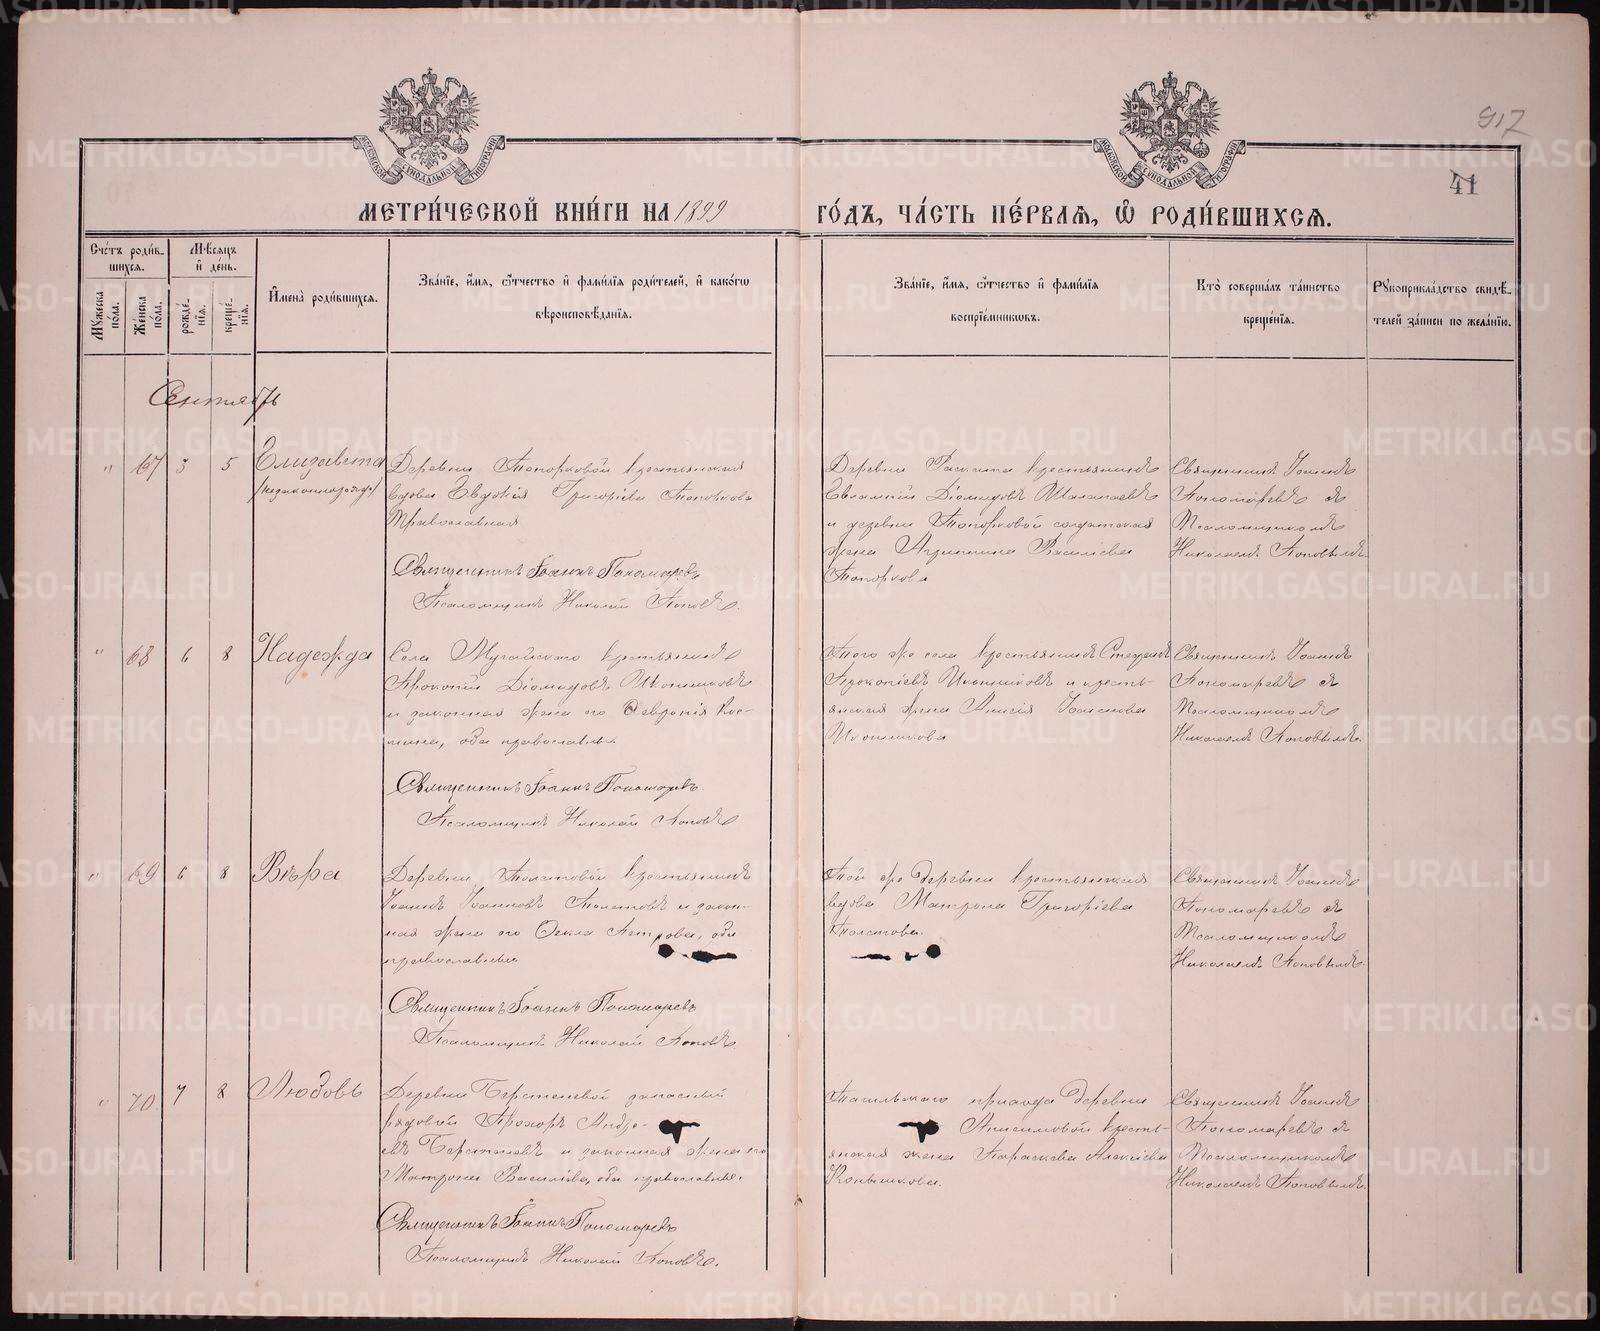 917
41
МОСКОВСКОЙ СѴНОДАЛЬНОЙ ТИПОГРАФІИ
МОСКОВСКОЙ СѴНОДАЛЬНОЙ ТИПОГРАФІИ
МЕТРИ́ЧЕСКОЙ КНИ́ГИ НА 1899
ГО́ДЪ, ЧА́СТЬ ПЕ́РВАЯ, Ѿ РОДИ́ВШИХСЯ.
Сче́тъ роди́в-
шихся.
Мꙋжеска по́ла.
Же́нска по́ла.
Мѣ́сяцъ
и҆ де́нь.
рожде́нїя.
креще́нїя.
И҆мена̀ роди́вшихся.
Зва́нїе, и҆́мя, ѻ҆́тчество и҆ фами́лїя роди́телей, и҆ како́гѡ
вѣроисповѣ́данїя.
Зва́нїе, и҆́мя, ѻ҆́тчество и҆ фами́лїя
воспрїе́мникѡвъ.
Кто̀ соверша́лъ та́инство
креще́нїя.
Рꙋкоприкла́дство свидѣ́-
телей за́писи по жела́нїю.
Сентябрь
" 67 3 5 Елизавета
(незаконнорожд.)
Деревни Топорковой крестьянская
вдова Евдокія Григоріева Топоркова
Православная
Священникъ Іоаннъ Пономаревъ
Псаломщикъ Николай Поповъ.
Деревни Раската крестьянинъ
Евлампій Діомидовъ Шалапаевъ
и деревни Топорковой солдатская
жена Агриппина Василіева
Топоркова
Священникъ Іоаннъ
Пономаревъ съ
Псаломщикомъ
Николаемъ Поповымъ.
" 68 6 8 Надежда
Села Мугайского крестьянинъ
Прокопій Діомидовъ Иконниковъ
и законная жена его Февронія Кос-
мина, оба православные
Священникъ Іоаннъ Пономаревъ.
Псаломщикъ Николай Поповъ
Того же села крестьянинъ Стефанъ
Прокопіевъ Иконниковъ и кресть-
янская жена Анисія Іоаннова
Иконникова
Священникъ Іоаннъ
Пономаревъ съ
Псаломщикомъ
Николаемъ Поповымъ.
" 69 6 8 Вѣра
Деревни Толстовой крестьянинъ
Іоаннъ Іоанновъ Толстовъ и закон-
ная жена его Ѳекла Петрова, оба
православные
Священникъ Іоаннъ Пономаревъ
Псаломщикъ Николай Поповъ.
Той же деревни крестьянская
вдова Матрона Григоріева
Толстова.
Священникъ Іоаннъ
Пономаревъ съ
Псаломщикомъ
Николаемъ Поповымъ.
" 70 7 8 Любовь
Деревни Берстеневой запасный
рядовой Прохоръ Андре-
евъ Берстеневъ и законная жена его
Матрона Василіева, оба православные.
Священникъ Іоаннъ Пономаревъ
Псаломщикъ Николай Поповъ.
прихода деревни
Анисимовой кресть-
янская жена Параскева Алексіева
Коньшикова.
Священникъ Іоаннъ
Пономаревъ съ
Псаломщикомъ
Николаемъ Поповымъ.
METRIKI.GASO-URAL.RU